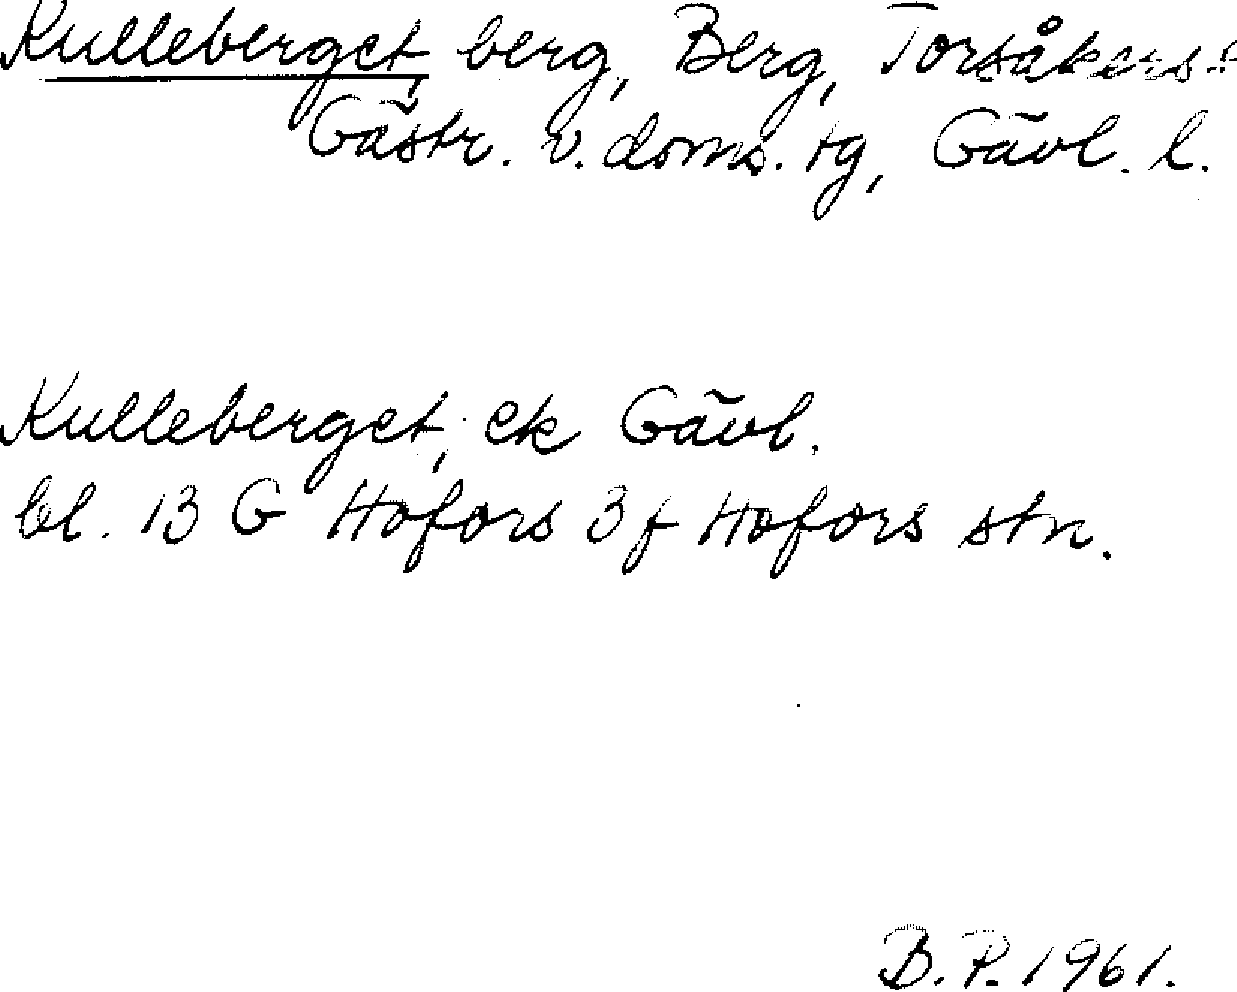 Kulleberget, berg, Berg, Torsåkers s:
Gästr. v. doms. tg, Gävl. l.
Kulleberget, ek Gävl.
bl. 13 G Hofors 3 f Hofors stn.
B. P. 1961.